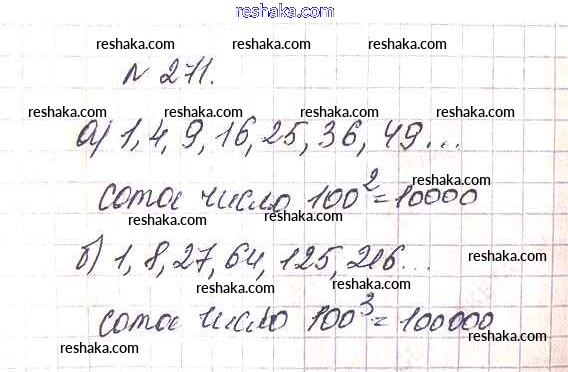 reshaka.com
reshaka.com reshaka.com reshaka.com
№ 271.
reshaka.com reshaka.com
reshaka.com reshaka.com reshaka.com
а) 1, 4, 9, 16, 25, 36, 49...
reshaka.com reshaka.com
сота число 100² = 10000
reshaka.com reshaka.com reshaka.com
б) 1, 8, 27, 64, 125, 216...
reshaka.com reshaka.com
reshaka.com reshaka.com reshaka.com
сота число 100³ = 100000
reshaka.com reshaka.com